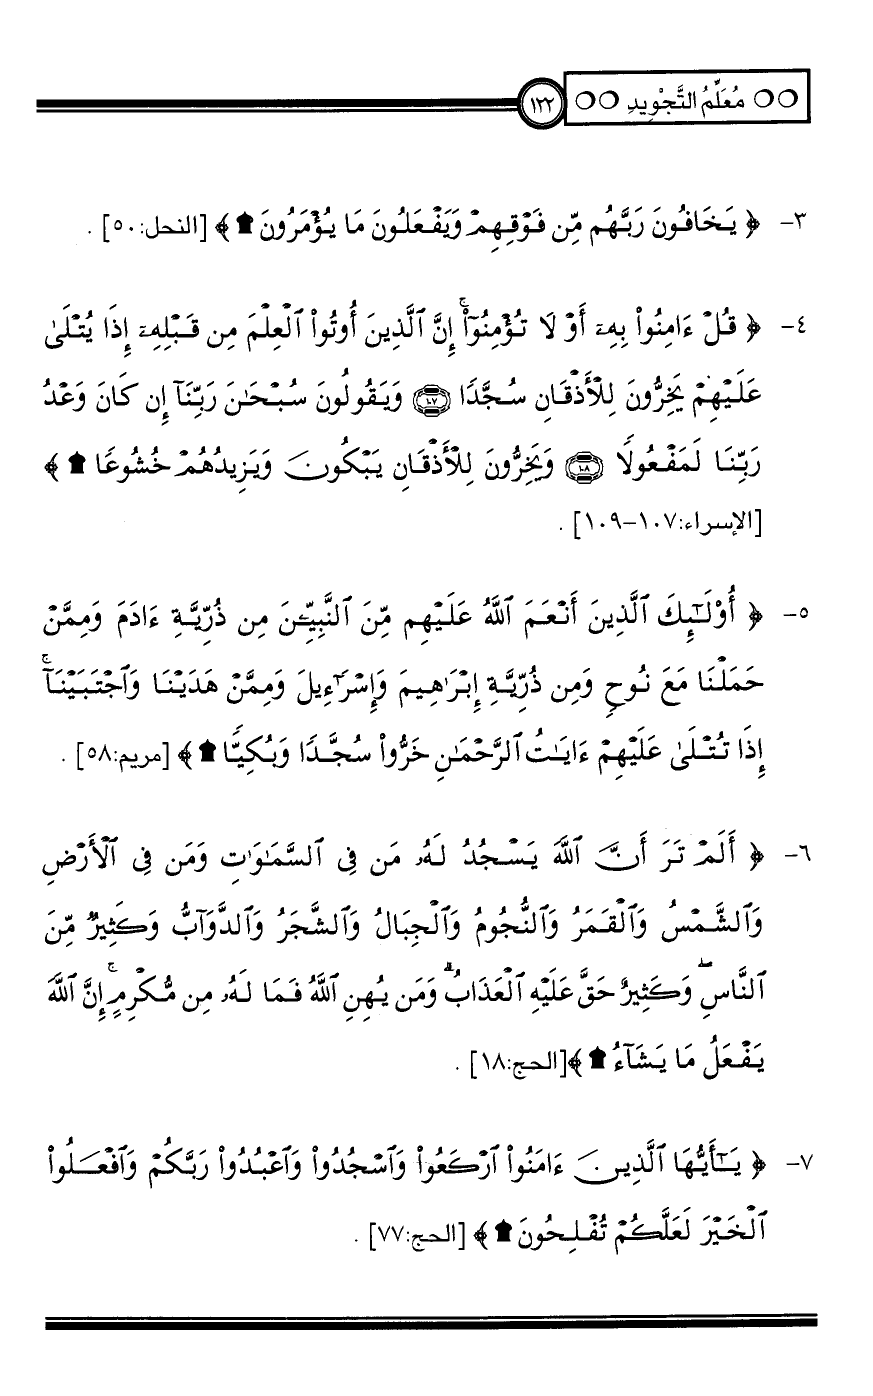 ○○ مُعَلِّمُ التَّجْوِيدِ ○○ ١٢٢
٣- ﴿ يَخَافُونَ رَبَّهُم مِّن فَوْقِهِمْ وَيَفْعَلُونَ مَا يُؤْمَرُونَ ۩ ﴾ [النحل:٥٠] .
٤- ﴿ قُلْ ءَامِنُوا۟ بِهِۦٓ أَوْ لَا تُؤْمِنُوٓا۟ ۚ إِنَّ ٱلَّذِينَ أُوتُوا۟ ٱلْعِلْمَ مِن قَبْلِهِۦٓ إِذَا يُتْلَىٰ
عَلَيْهِمْ يَخِرُّونَ لِلْأَذْقَانِ سُجَّدًا ١٠٧ وَيَقُولُونَ سُبْحَـٰنَ رَبِّنَآ إِن كَانَ وَعْدُ
رَبِّنَا لَمَفْعُولًا ١٠٨ وَيَخِرُّونَ لِلْأَذْقَانِ يَبْكُونَ وَيَزِيدُهُمْ خُشُوعًا ۩ ﴾
[الإسراء:١٠٧-١٠٩] .
٥- ﴿ أُو۟لَـٰٓئِكَ ٱلَّذِينَ أَنْعَمَ ٱللَّهُ عَلَيْهِم مِّنَ ٱلنَّبِيِّـۧنَ مِن ذُرِّيَّةِ ءَادَمَ وَمِمَّنْ
حَمَلْنَا مَعَ نُوحٍ وَمِن ذُرِّيَّةِ إِبْرَٰهِيمَ وَإِسْرَٰٓءِيلَ وَمِمَّنْ هَدَيْنَا وَٱجْتَبَيْنَآ ۚ
إِذَا تُتْلَىٰ عَلَيْهِمْ ءَايَـٰتُ ٱلرَّحْمَـٰنِ خَرُّوا۟ سُجَّدًا وَبُكِيًّا ۩ ﴾ [مريم:٥٨] .
٦- ﴿ أَلَمْ تَرَ أَنَّ ٱللَّهَ يَسْجُدُ لَهُۥ مَن فِى ٱلسَّمَـٰوَٰتِ وَمَن فِى ٱلْأَرْضِ
وَٱلشَّمْسُ وَٱلْقَمَرُ وَٱلنُّجُومُ وَٱلْجِبَالُ وَٱلشَّجَرُ وَٱلدَّوَآبُّ وَكَثِيرٌ مِّنَ
ٱلنَّاسِ ۖ وَكَثِيرٌ حَقَّ عَلَيْهِ ٱلْعَذَابُ ۗ وَمَن يُهِنِ ٱللَّهُ فَمَا لَهُۥ مِن مُّكْرِمٍ ۚ إِنَّ ٱللَّهَ
يَفْعَلُ مَا يَشَآءُ ۩ ﴾[الحج:١٨] .
٧- ﴿ يَـٰٓأَيُّهَا ٱلَّذِينَ ءَامَنُوا۟ ٱرْكَعُوا۟ وَٱسْجُدُوا۟ وَٱعْبُدُوا۟ رَبَّكُمْ وَٱفْعَلُوا۟
ٱلْخَيْرَ لَعَلَّكُمْ تُفْلِحُونَ ۩ ﴾ [الحج:٧٧] .